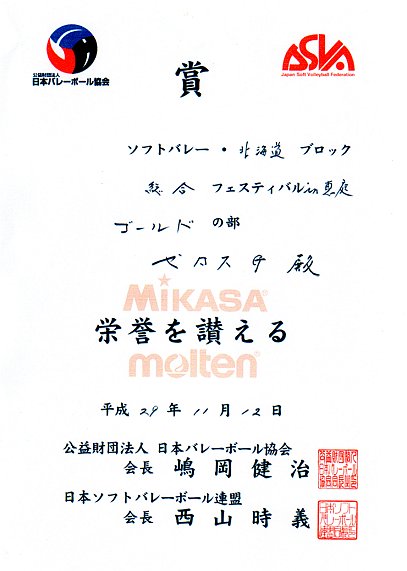 公益財団法人
日本バレーボール協会
JSVA
Japan Soft Volleyball Federation
賞
ソフトバレー・北海道 ブロック
総合 フェスティバルin恵庭
ゴールド の部
ゼロスタ 殿
MIKASA
栄誉を讃える
molten
平成 29 年 11 月 12 日
公益財団法人 日本バレーボール協会
会長 嶋岡健治
日本ソフトバレーボール連盟
会長 西山時義